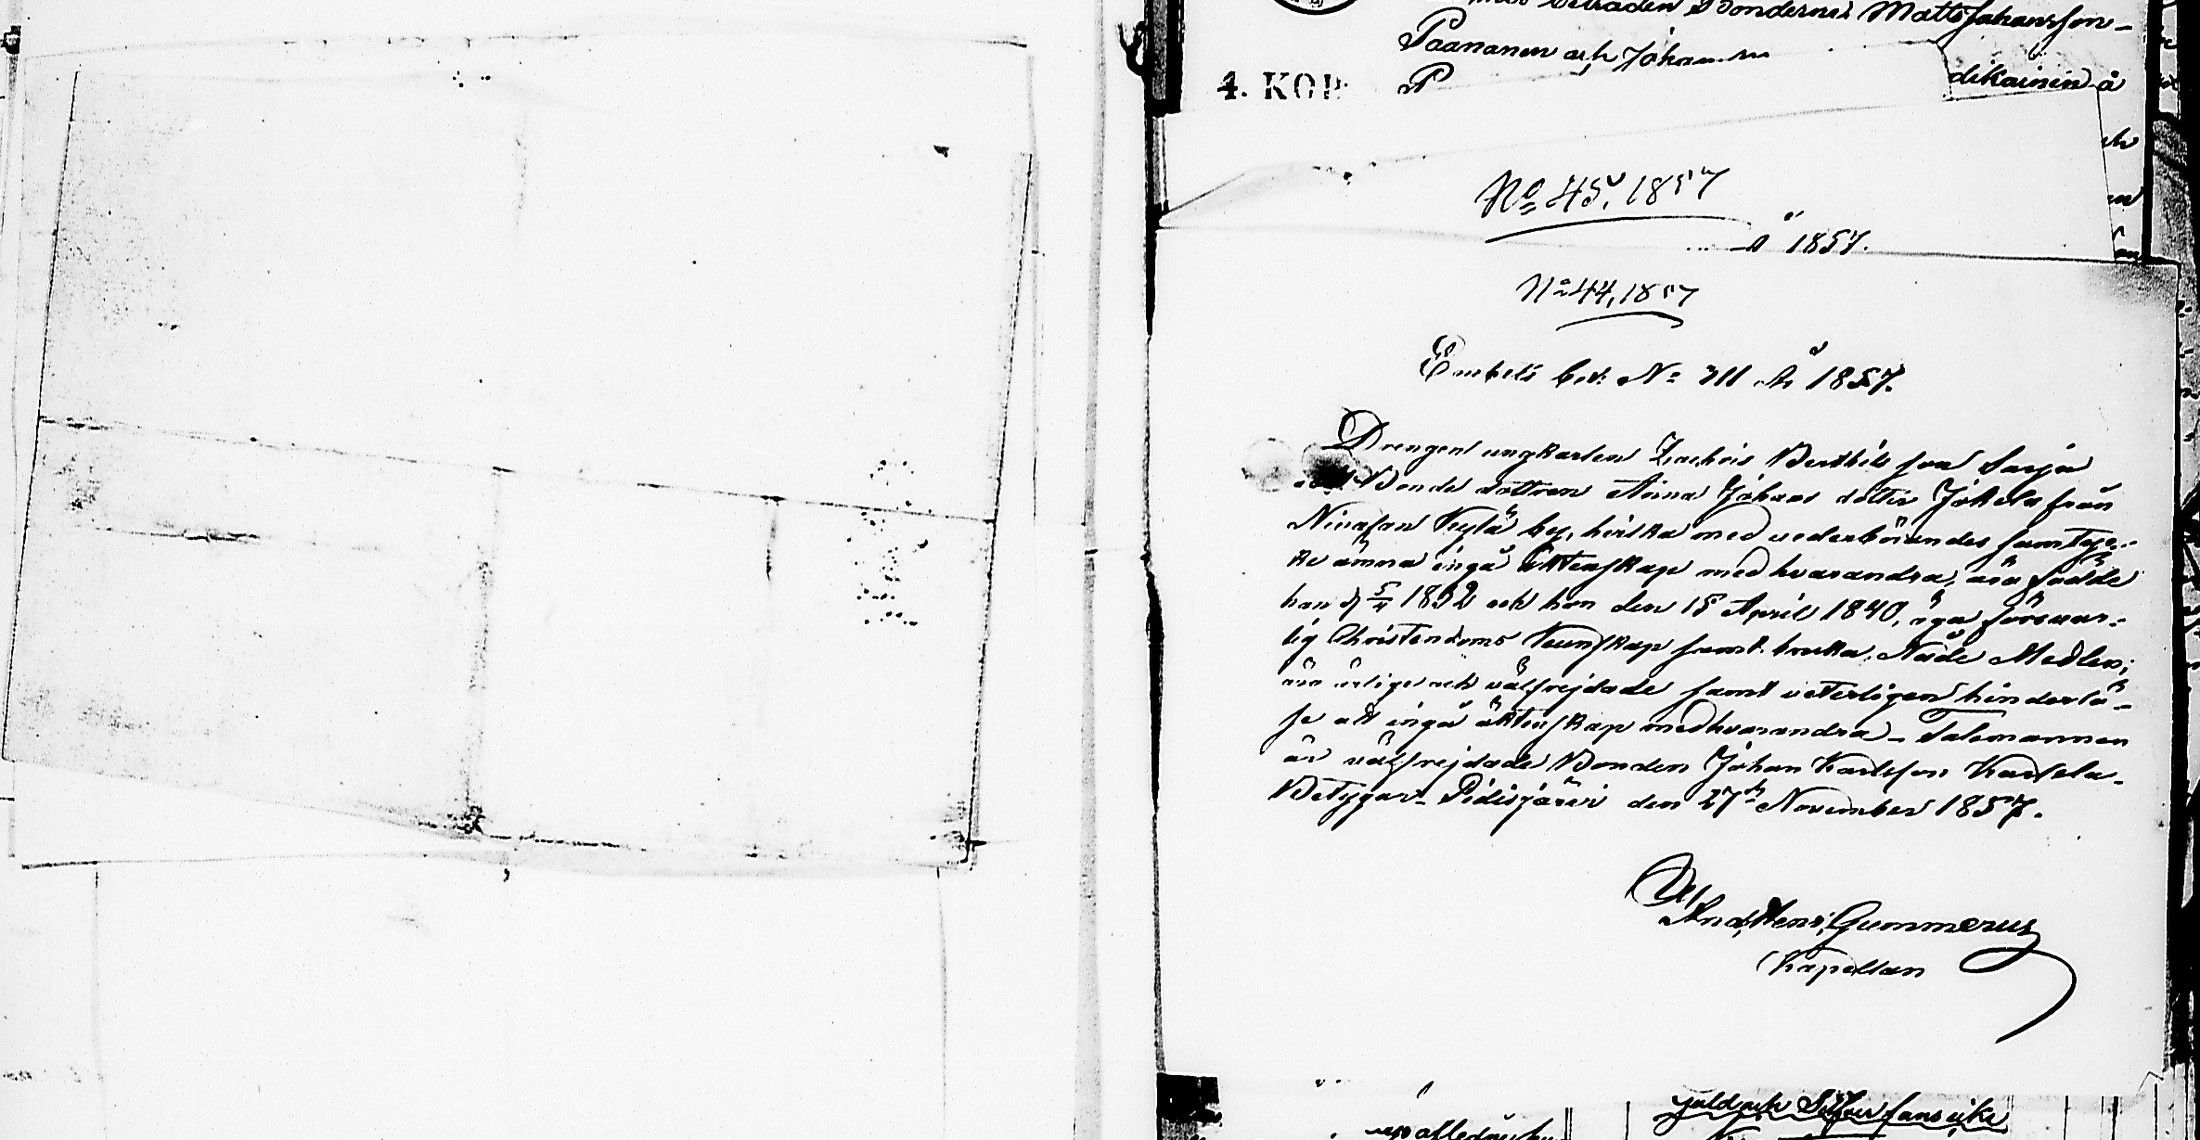 betraden Bonderne Matts Johansson-
Paananen och Johan
4. KOP
dikainen å
No 45, 1857
å 1857.
No 44, 1857
Embets bet. No 311 År 1857.
Drengen ungkarlen Zachris Berthils son Sarja
Bonde dottren Anna Johans dotter Jokela från
Nivasan Kylä by, hvilka med vederbörandes samtyc-
ke ämna ingå äktenskap med hvarandra, äro födde
han d 5/4 1832 och hon den 15 April 1840, äga försvar-
lig Christendoms Kunskap samt bruka Nåde Medlen;
äro ärlige och välfrejdade samt veterligen hinderlö-
se att ingå äktenskap med hvarandra - Talemannen
är välfrejdade Bonden Johan Karlsson Karsela.
Betygar Pidisjärvi den 27de November 1857.
And, Henr, Gummerus
Kapellan
guld och Silfver fans icke